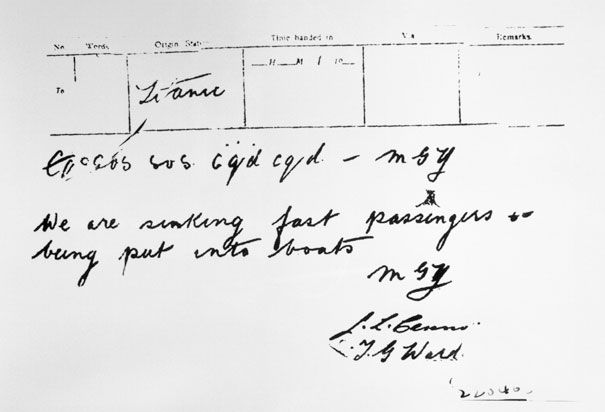 No. Words. Origin. Station Time handed in Via Remarks.
To Titanic H M 19
SOS SOS cqd cqd - MGY
We are sinking fast passengers
being put into boats
MGY
T G Ward